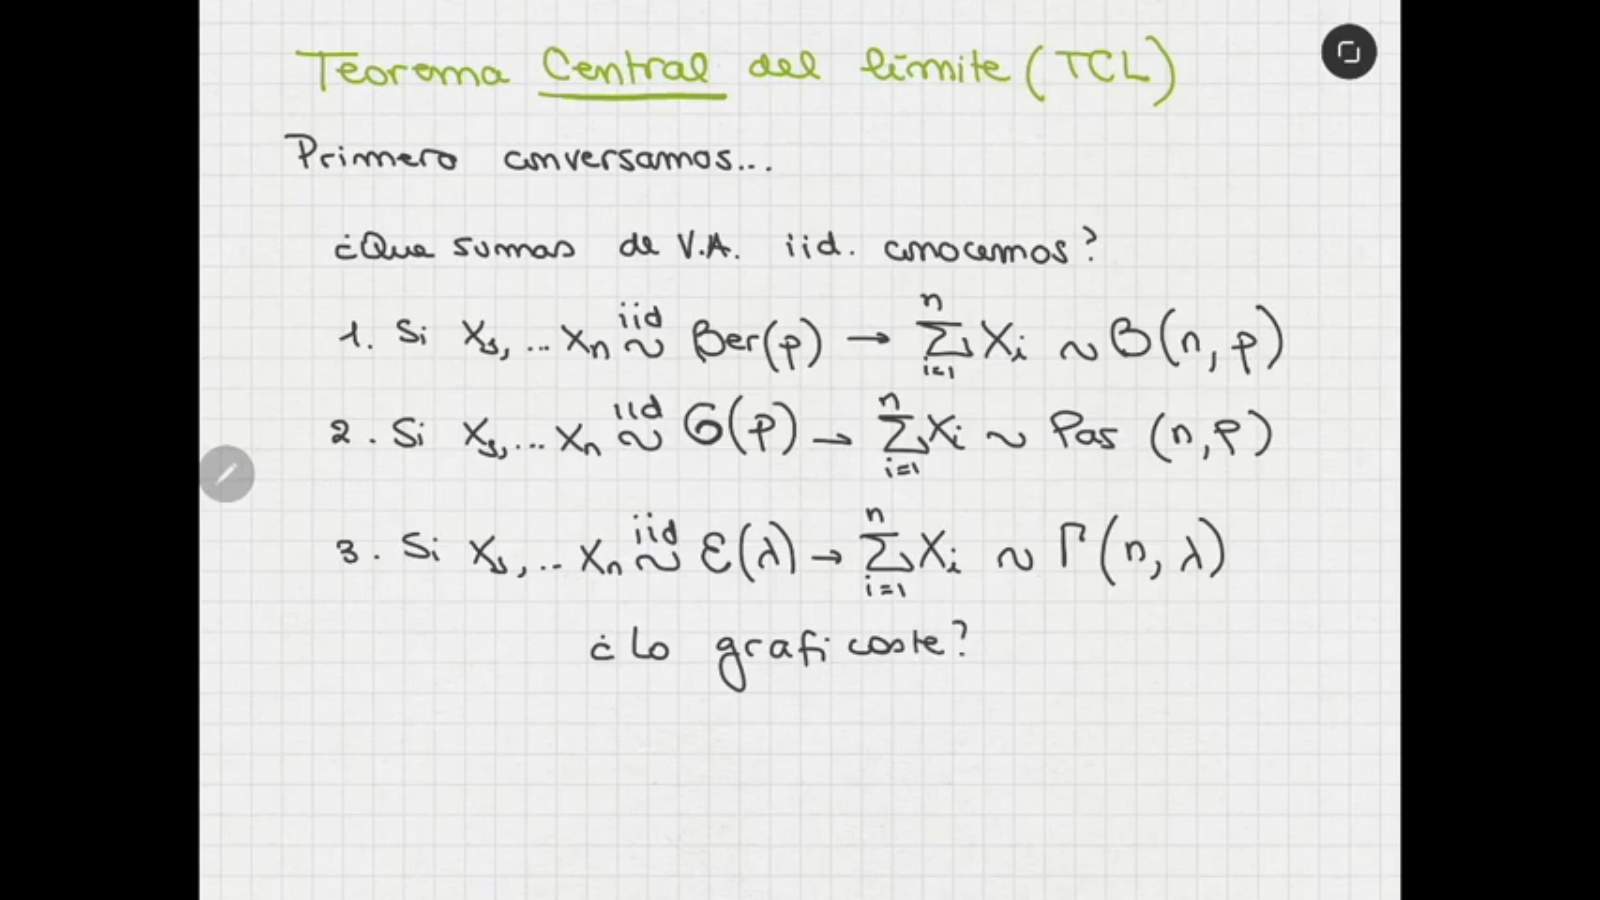 Teorema Central del límite (TCL)
Primero conversamos...
¿Que sumas de V.A. iid. conocemos?
1. Si X₁, ... Xn iid ~ Ber(p) → n Σ i=1 Xi ~ B(n, p)
2. Si X₁, ... Xn iid ~ G(p) → n Σ i=1 Xi ~ Pas (n, p)
3. Si X₁, ... Xn iid ~ Ɛ(λ) → n Σ i=1 Xi ~ Γ(n, λ)
¿Lo graficaste?